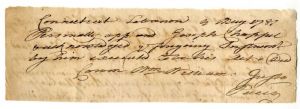 Connecticut Lebanon 4 May 1785
Personally appeared Joseph Chappel
and acknowledged foregoing Instrument
by him executed to be his act & Deed
Coram Wm Williams Jus
Pacis